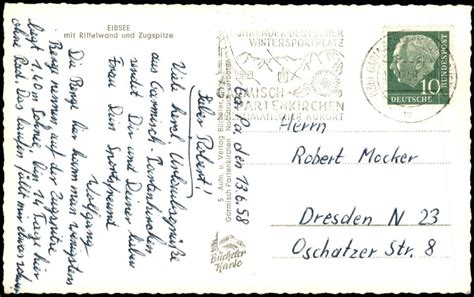 EIBSEE
mit Riffelwand und Zugspitze
Ga-Pa, den 13.6.58
Lieber Robert!
Viele herzl. Urlaubsgrüße
aus Garmisch-Partenkirchen
sendet Dir und Deiner lieben
Frau Dein Sportsfreund
Wolfgang
Die Berge hier kann man wenigstens
Berge nennen, auf der Zugspitze
liegt 1,40 m Schnee, bin 14 Tage hier
ohne Rad. Das Laufen fällt mir etwas schwer
5. Aufn. u. Verlag
Garmisch-Partenkirchen
Bücheler
Karte
DEUTSCHER
WINTERSPORTPLATZ
GARMISCH
PARTENKIRCHEN
KURORT
10
DEUTSCHE
BUNDESPOST
Herrn
Robert Mocker
Dresden N 23
Oschatzer Str. 8